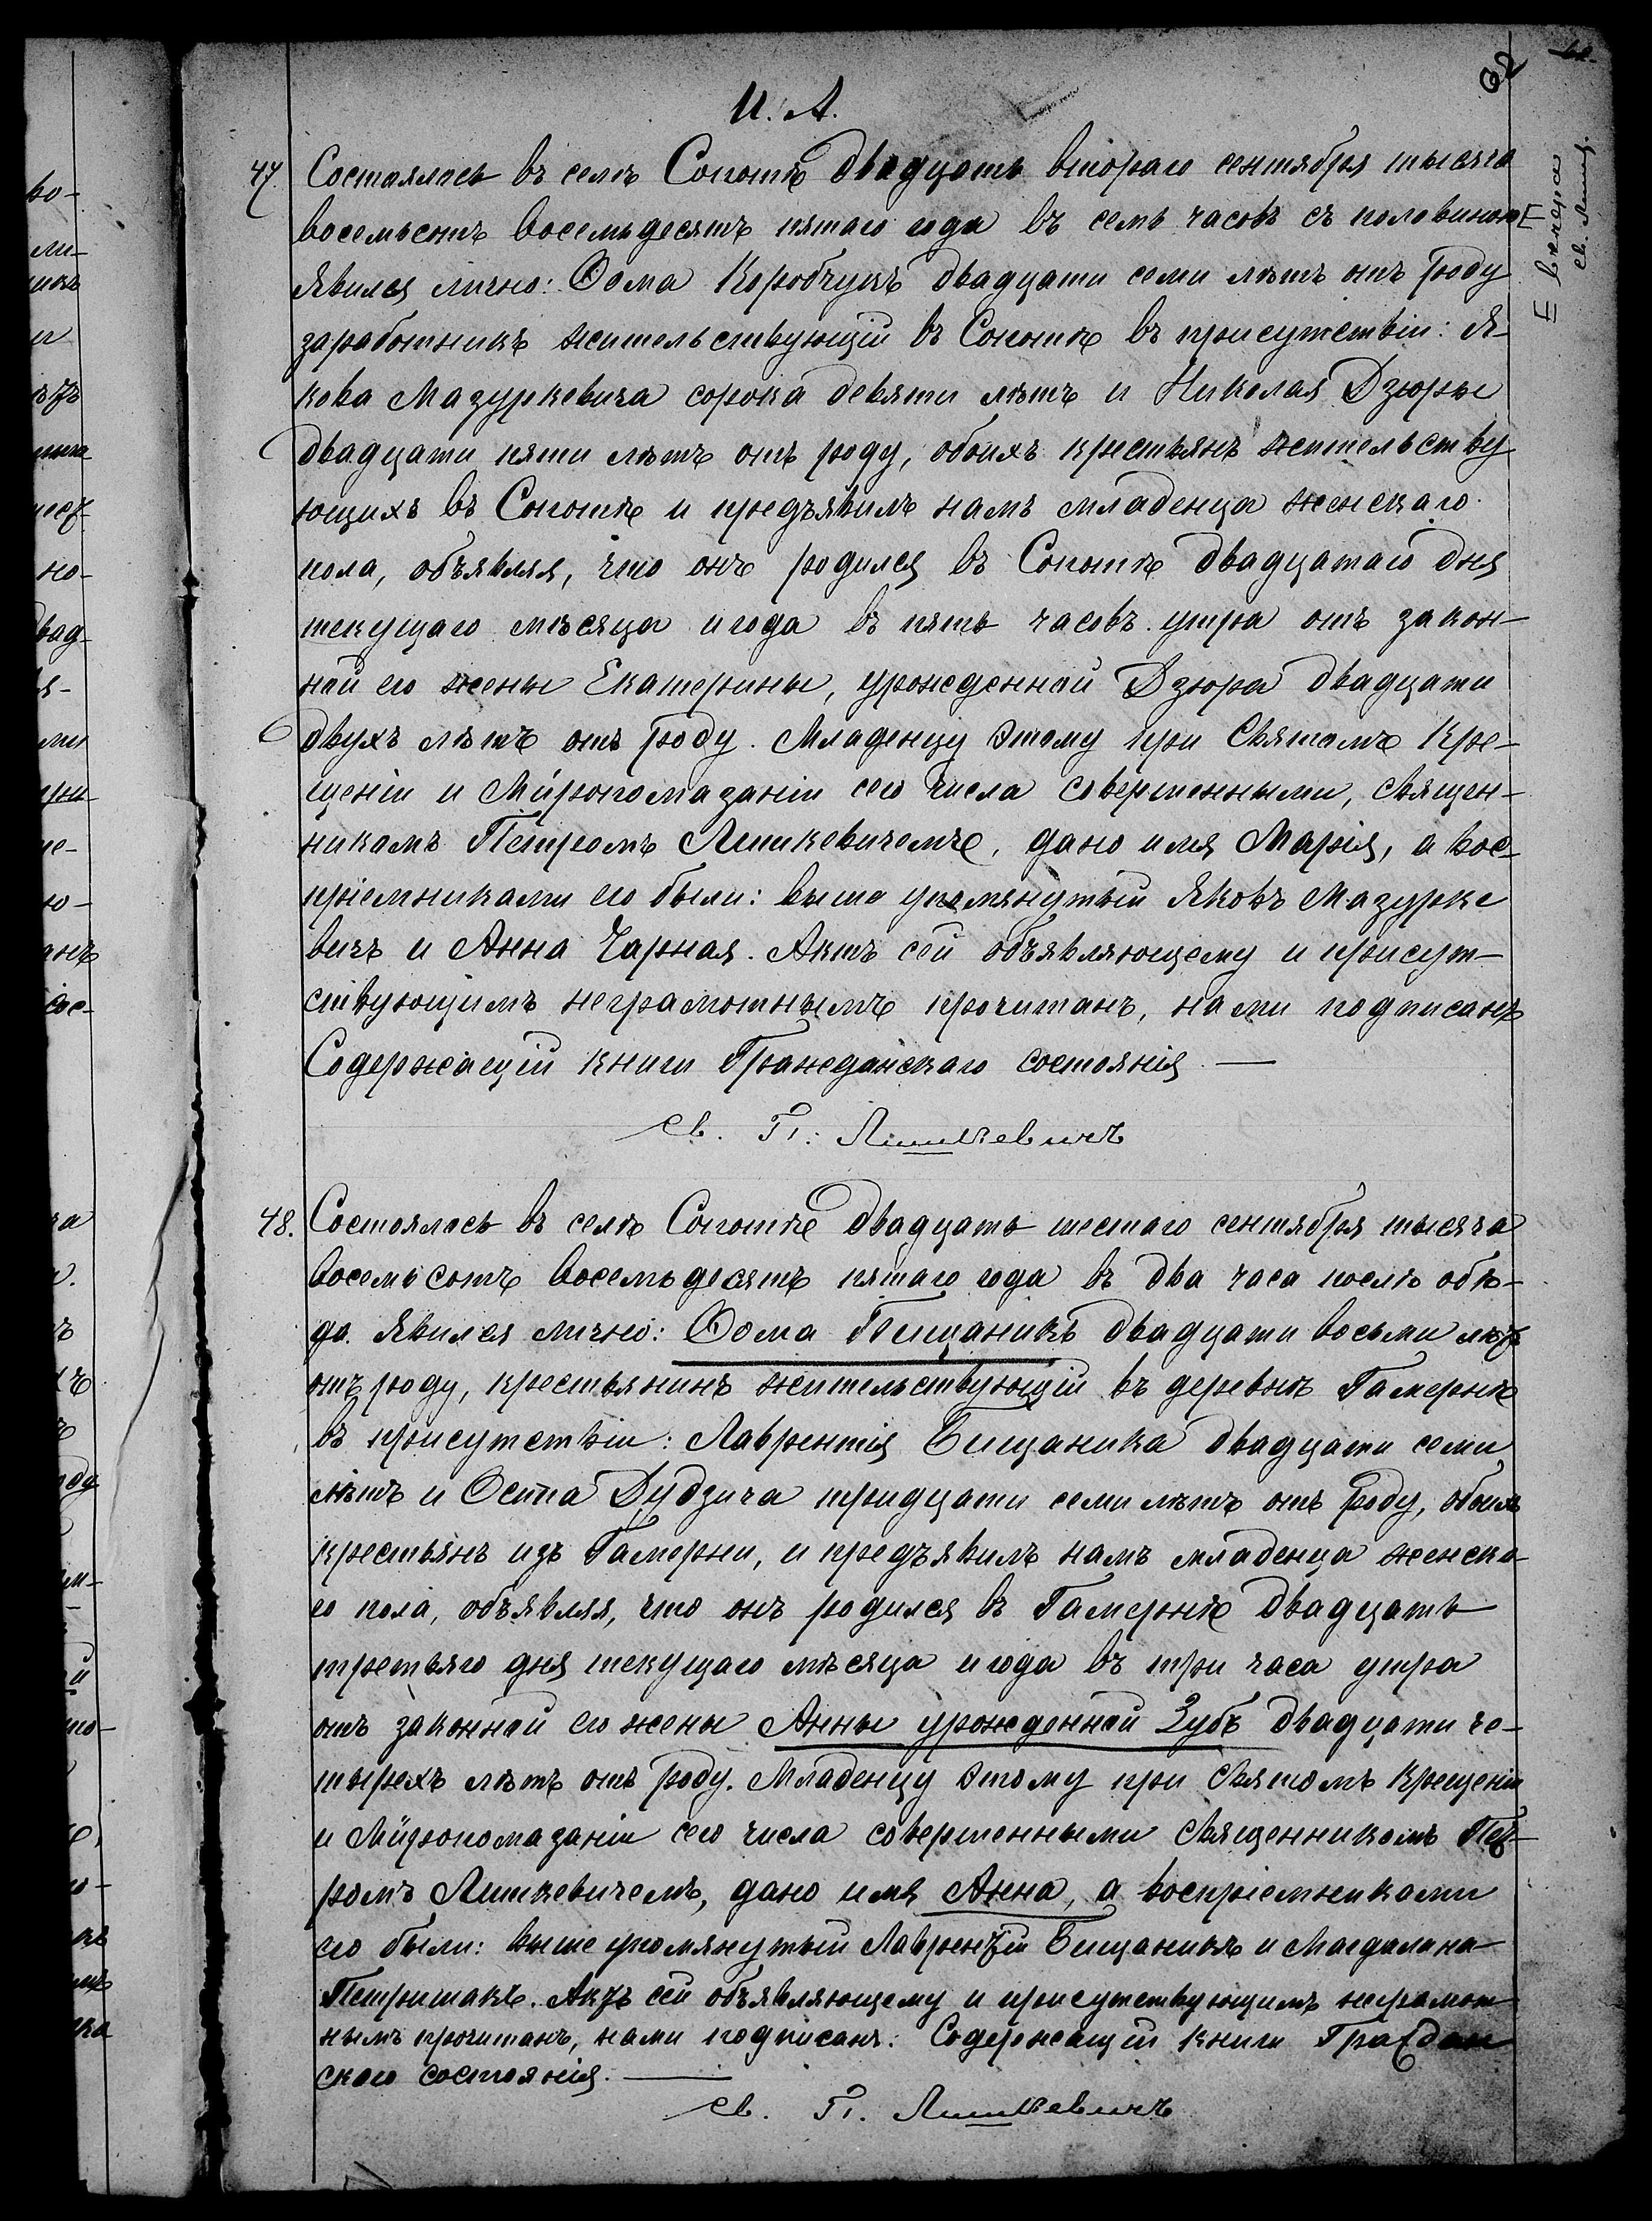 62
И. А.
47. Состоялось въ селѣ Сопотѣ двадцать втораго сентября тысяча
восемьсотъ восемьдесятъ пятаго года въ семь часовъ съ половиною
вечера
св. Лишк.
Явился лично: Ѳома Коробчукъ двадцати семи лѣтъ отъ роду
заработникъ жительствующій въ Сопотѣ въ присутствіи: Я-
кова Мазуркевича сорока девяти лѣтъ и Николая Дзюры
двадцати пяти лѣтъ отъ роду, обоихъ крестьянъ жительству
ющихъ въ Сопотѣ и предъявилъ намъ младенца женскаго
пола, объявляя, что онъ родился въ Сопотѣ двадцатаго дня
текущаго мѣсяца и года въ пять часовъ утра отъ закон-
ной его жены Екатерины, урожденной Дзюра двадцати
двухъ лѣтъ отъ роду. Младенцу этому при Святомъ Кре-
щеніи и Мѵропомазаніи сего числа совершенными, священ-
никомъ Петромъ Лишкевичемъ, дано имя Марія, а вос-
пріемниками его были: выше упомянутый Яковъ Мазурке
вичъ и Анна Чарная. Актъ сей объявляющему и присут-
ствующимъ неграмотнымъ прочитанъ, нами подписанъ
Содержащій книги Гражданскаго состоянія. —
св. П. Лишкевичъ
48. Состоялось въ селѣ Сопотѣ двадцать шестаго сентября тысяча
восемьсотъ восемьдесятъ пятаго года въ два часа послѣ обѣ-
да. Явился лично: Ѳома Бищаникъ двадцати восьми лѣтъ
отъ роду, крестьянинъ жительствующій въ деревнѣ Гамернѣ
въ присутствіи: Лаврентія Бищаника двадцати семи
лѣтъ и Осипа Дудзича тридцати семи лѣтъ отъ роду, обоихъ
крестьянъ изъ Гамерни, и предъявилъ намъ младенца женска-
го пола, объявляя, что онъ родился въ Гамернѣ двадцать
третьяго дня текущаго мѣсяца и года въ три часа утра
отъ законной его жены Анны урожденной Зубъ двадцати че-
тырехъ лѣтъ отъ роду. Младенцу этому при Святомъ Крещеніи
и Мѵропомазаніи сего числа совершенными священникомъ Пет-
ромъ Лишкевичемъ, дано имя Анна, а воспріемниками
его были: выше упомянутый Лаврентій Бищаникъ и Магдалана
Петришакъ. Актъ сей объявляющему и присутствующимъ неграмот
нымъ прочитанъ, нами подписанъ. Содержащій книги Граждан
скаго состоянія. —
св. П. Лишкевичъ